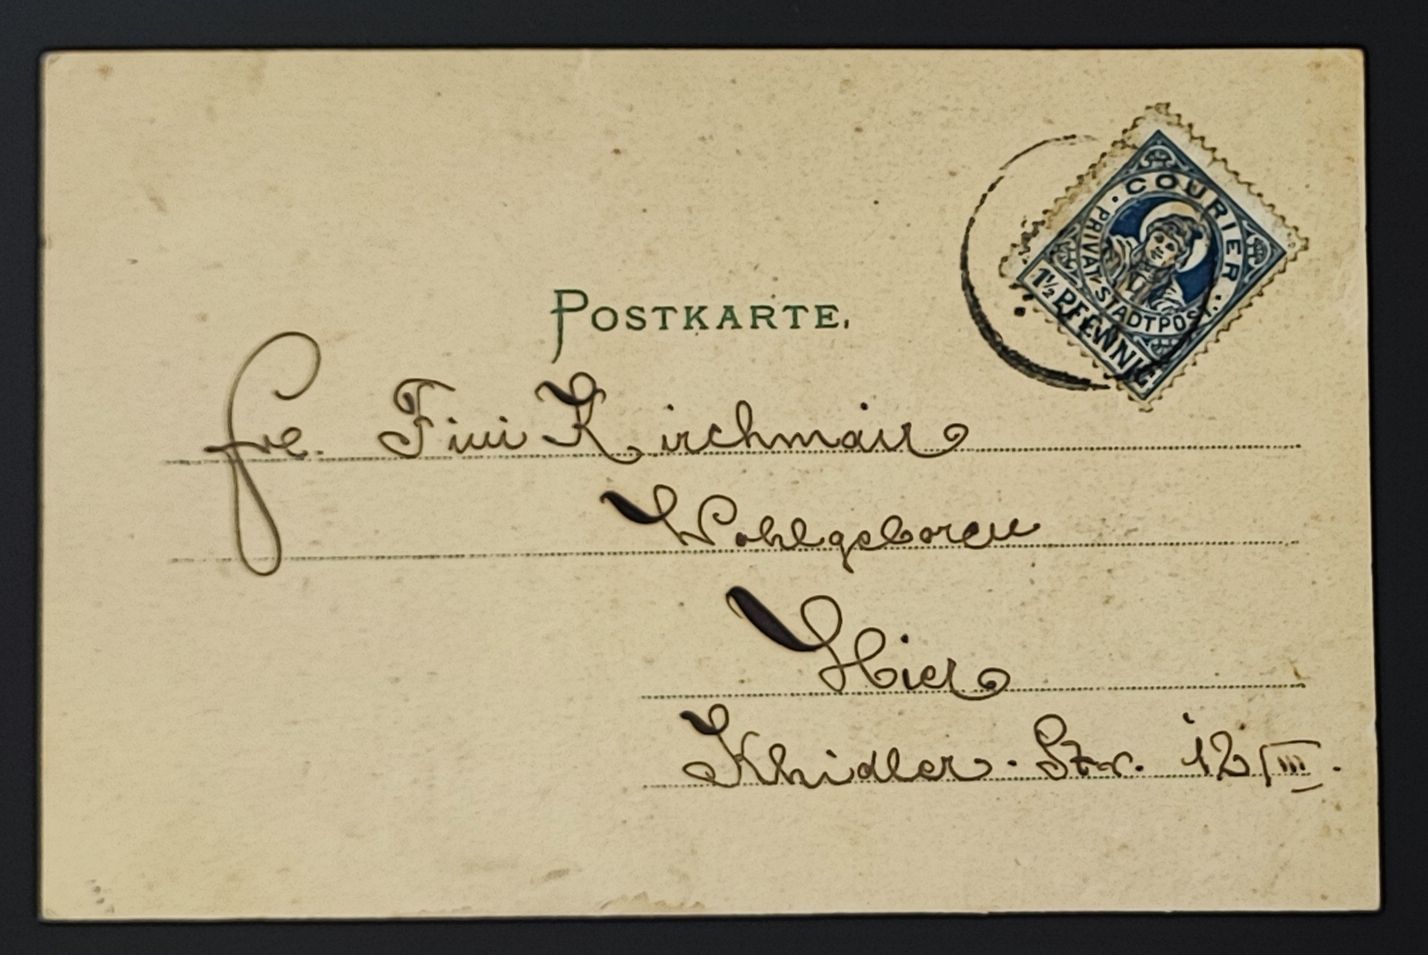 COURIER
PRIVAT-STADTPOST.
1½ PFENNIG
POSTKARTE.
Frl. Fini Kirchmair
Wohlgeboren
Hier
Khidler-Str. 12/III.